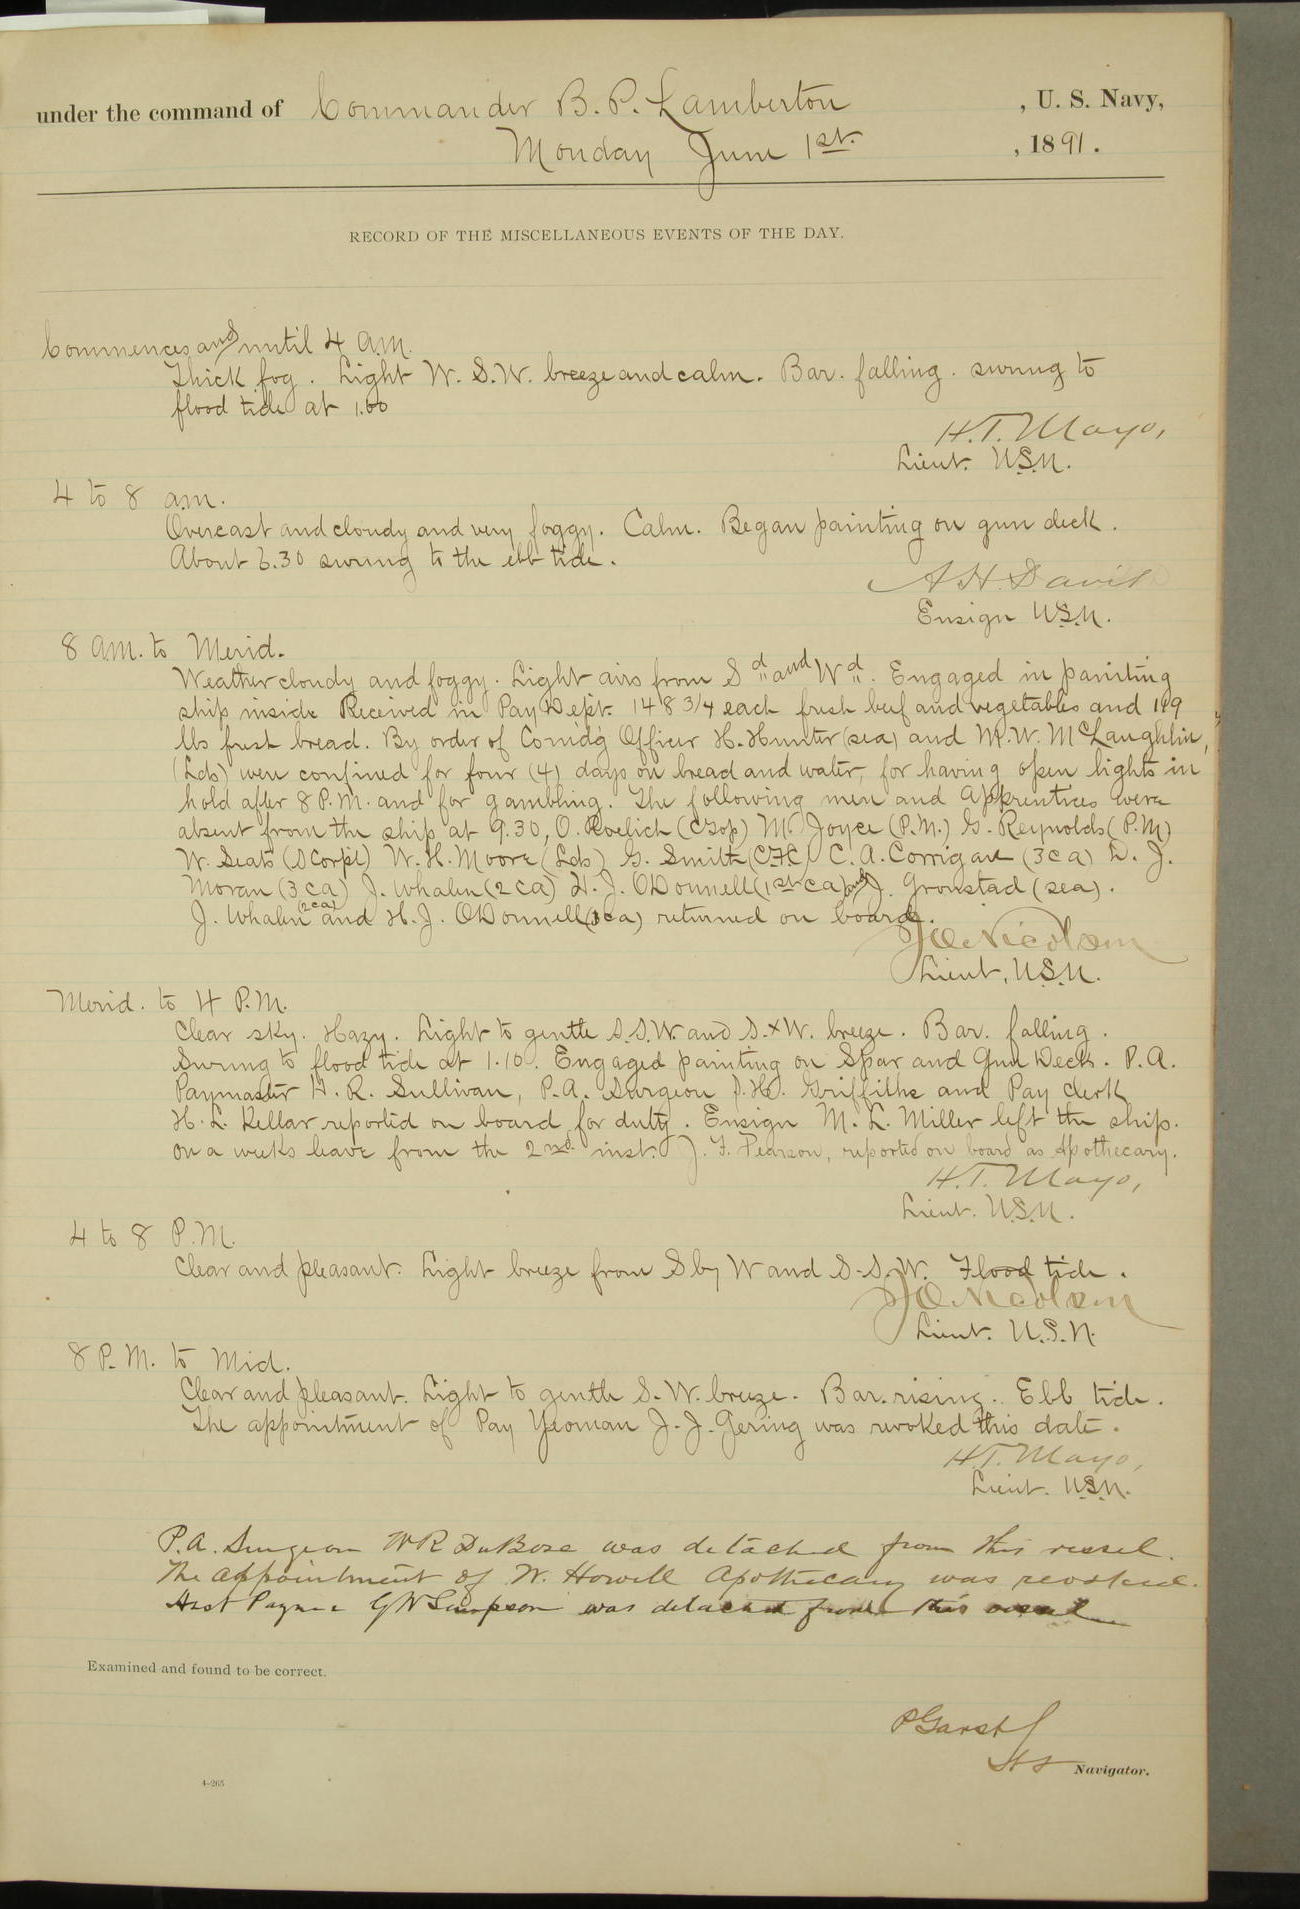 under the command of Commander B. P. Lamberton , U. S. Navy,
Monday June 1st. , 1891.
RECORD OF THE MISCELLANEOUS EVENTS OF THE DAY.
Commences and until 4 a.m.
Thick fog. Light W. S.W. breeze and calm. Bar. falling. swung to
flood tide at 1.00
H.T. Mayo,
Lieut. U.S.N.
4 to 8 a.m.
Overcast and cloudy and very foggy. Calm. Began painting on gun deck.
About 6.30 swung to the ebb tide.
A H. Davis
Ensign U.S.N.
8 a.m. to Merid.
Weather cloudy and foggy. Light airs from Sd and Wd. Engaged in painting
ship inside Received in Pay Dept. 148 3/4 each fresh beef and vegetables and 149
lbs fresh bread. By order of Comdg Officer H. Hunter (sea) and M. W. McLaughlin,
(Lds) were confined for four (4) days on bread and water, for having open lights in
hold after 8 P.M. and for gambling. The following men and apprentices were
absent from the ship at 9.30, O. Roelich M. Joyce (P.M.) G. Reynolds (P.M)
W. Seats (S Corpl) W. H. Moore (Lds) G. Smith C. A. Corrigan (3 c a) D. J.
Moran (3 c a) J. Whalen (2 c a) H. J. ODonnell (1st c a) and J. Gronstad (sea).
J. Whalen (2 c a) and H. J. ODonnell returned on board.
J O Nicolson
Lieut, U.S.N.
Merid. to 4 P.M.
Clear sky. Hazy. Light to gentle S.S.W. and S. x W. breeze. Bar. falling.
Swung to flood tide at 1.10. Engaged painting on Spar and Gun Decks. P.A.
Paymaster F. R. Sullivan, P.A. Surgeon S. H. Griffiths and Pay Clerk
H. L. Kellar reported on board for duty. Ensign M. L. Miller left the ship.
on a weeks leave from the 2nd. inst. J. F. Pearson, reported on board as Apothecary.
H.T. Mayo,
Lieut. U.S.N.
4 to 8 P.M.
Clear and pleasant. Light breeze from S by W and S-S.W. Flood tide.
J O Nicolson
Lieut. U.S.N.
8 P.M. to Mid.
Clear and pleasant. Light to gentle S. W. breeze. Bar. rising. Ebb tide.
The appointment of Pay Yeoman J. J. Gering was revoked this date.
H.T. Mayo,
Lieut. U.S.N.
P.A. Surgeon W R DuBose was detached from this vessel.
The appointment of W. Howell Apothecary was revoked.
Asst Paymr G W Simpson was detached from this vessel
Examined and found to be correct.
P Garst
Lt Navigator.
4-265